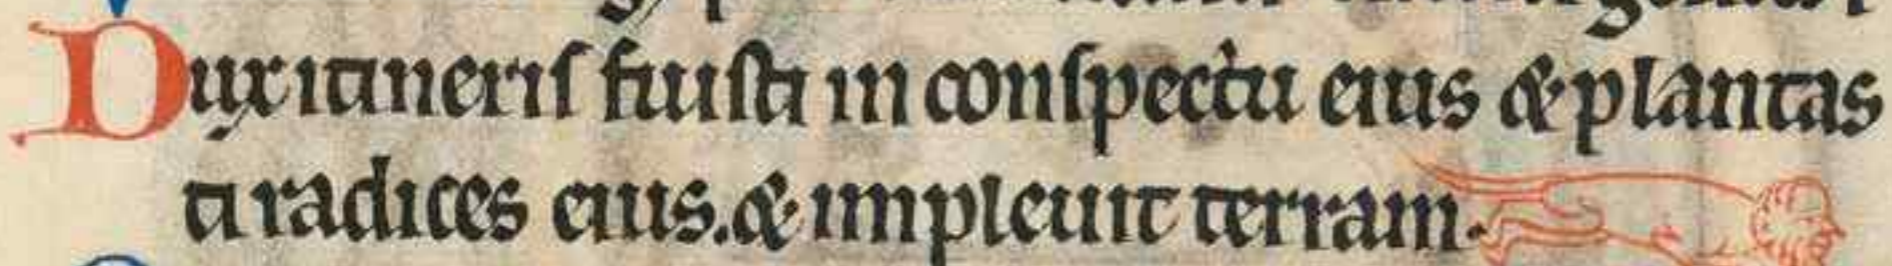 Dux itineris fuisti in conspectu eius & plantas
ti radices eius. & impleuit terram.